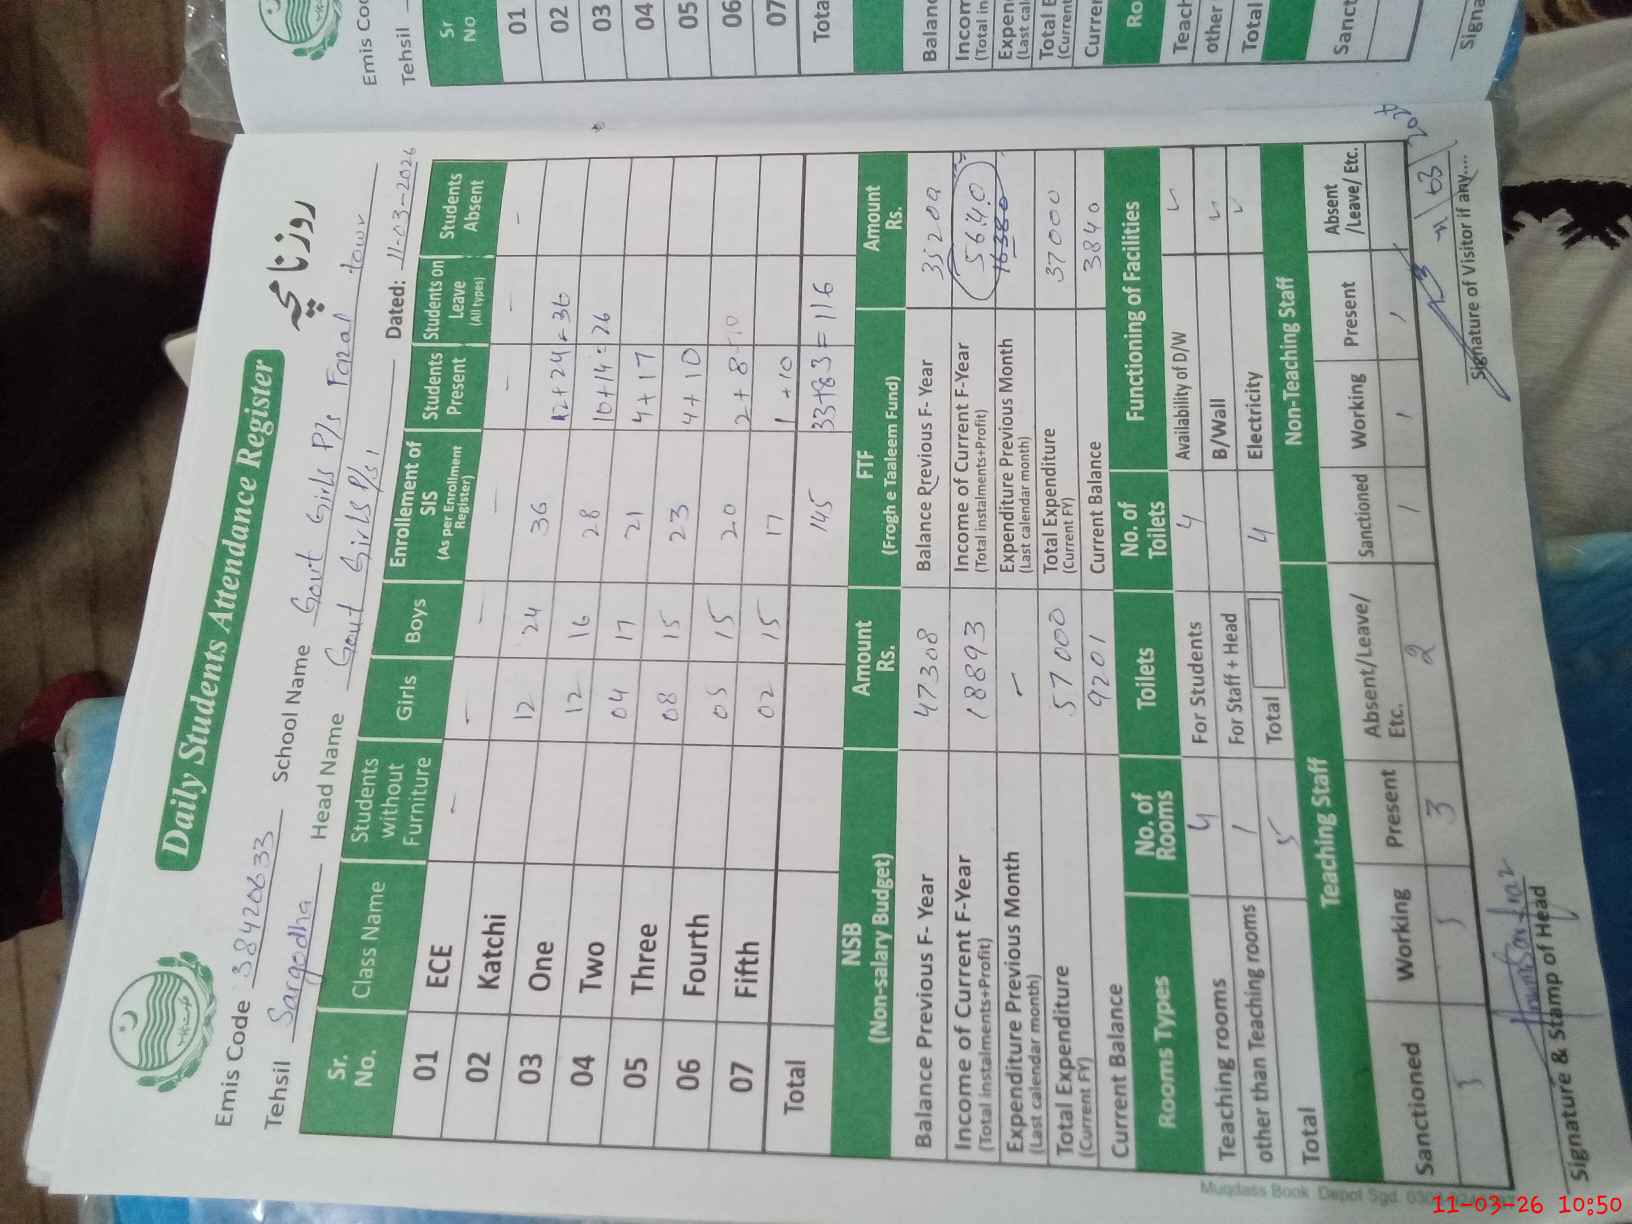 Daily Students Attendance Register
روزنامچہ
Emis Code 38420633 School Name Govt Girls P/s Fazal town
Tehsil Sargodha Head Name Govt Girls P/s, Dated: 11-03-2026
Sr. No. Class Name Students without Furniture Girls Boys Enrollement of SIS (As per Enrollment Register) Students Present Students on Leave (All types) Students Absent
01 ECE - - - - - - -
02 Katchi 12 24 36 12+24=36
03 One 12 16 28 10+14=26
04 Two 04 17 21 4+17
05 Three 08 15 23 4+10
06 Fourth 05 15 20 2+8=10
07 Fifth 02 15 17 1+10
Total 145 33+83=116
NSB (Non-salary Budget) Amount Rs. FTF (Frogh e Taaleem Fund) Amount Rs.
Balance Previous F- Year 47308 Balance Previous F- Year 35200
Income of Current F-Year (Total instalments+Profit) 18893 Income of Current F-Year (Total instalments+Profit) 5640
Expenditure Previous Month (Last calendar month) - Expenditure Previous Month (Last calendar month)
Total Expenditure (Current FY) 57000 Total Expenditure (Current FY) 37000
Current Balance 9201 Current Balance 3840
Rooms Types No. of Rooms Toilets No. of Toilets Functioning of Facilities
Teaching rooms 4 For Students 4 Availability of D/W ✓
other than Teaching rooms 1 For Staff + Head B/Wall ✓
Total 5 Total 4 Electricity ✓
Teaching Staff Non-Teaching Staff
Sanctioned Working Present Absent/Leave/ Etc. Sanctioned Working Present Absent /Leave/ Etc.
5 5 3 2 1 1 1
Signature & Stamp of Head Signature of Visitor if any....
Muqdass Book Depot Sgd.
Emis Co
Tehsil
Sr No
01
02
03
04
05
06
07
Tota
Balanc
Incom
(Total in
Expen
(Last cal
Total E
(Current
Currer
Ro
Teach
other
Total
Sanct
Signa
11-03-26 10:50